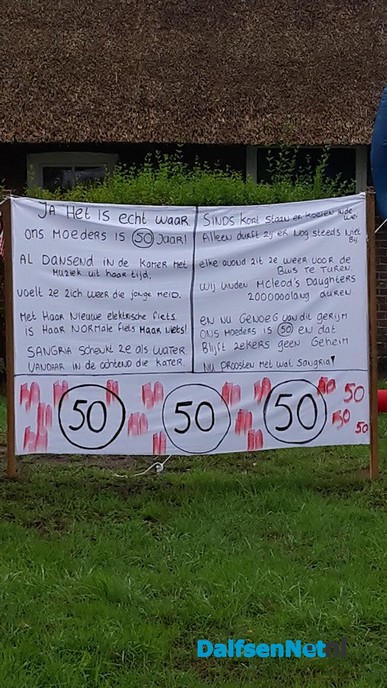 JA HET is echt waar
ons moeders is 50 Jaar!
AL DANSEND IN de KAMER MET
MUZIEK uit HAAR TIJD,
voelt ze zich weer die jonge meid.
Met HAAR NIEUWE elektrische FIETS
is HAAR NORMALE FIETS MAAR NIETS!
SANGRIA schenkt ze als WATER
VANDAAR in de ochtend die KATER.
SINDS kort staan er koeien in de
wei
Alleen durft zij er NOG Steeds Niet
Bij.
elke avond zit ze weer voor de
Buis te Turen
Wij vinden McLeod's DAUGHTERS
2000000lang duren.
en nu GENOEG van dit gerijm
ONS MOEDERS is 50 en dat
Blijft zekers geen GeHeim
Nu PROOSTEN met wat SANGRIA!
50 50 50
50 50 50
DalfsenNet.nl